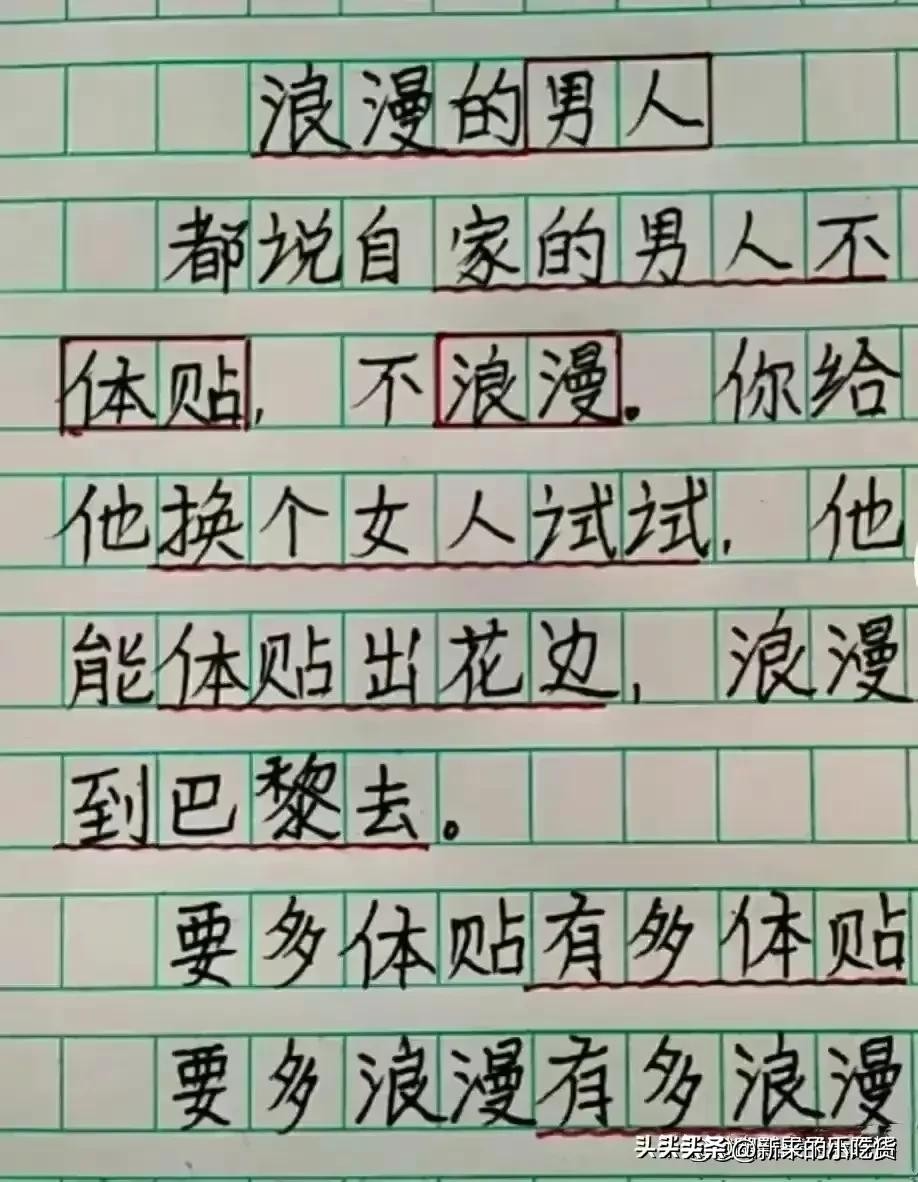 浪漫的男人
都说自家的男人不
体贴，不浪漫。你给
他换个女人试试，他
能体贴出花边，浪漫
到巴黎去。
要多体贴有多体贴
要多浪漫有多浪漫